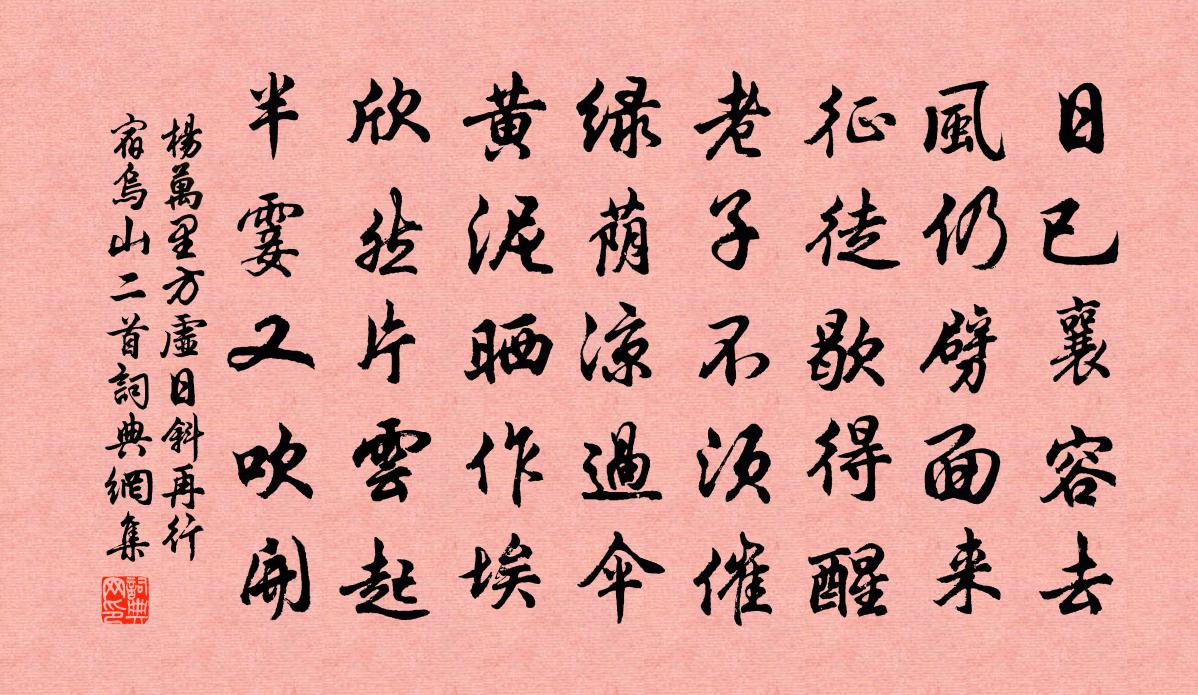 日已襄容去
風仍劈面来
征徒歇得醒
老子不须催
绿荫凉過伞
黄泥晒作埃
欣然片雲起
半霎又吹開
楊萬里方虛日斜再行
宿烏山二首詞典網集
詞典网印